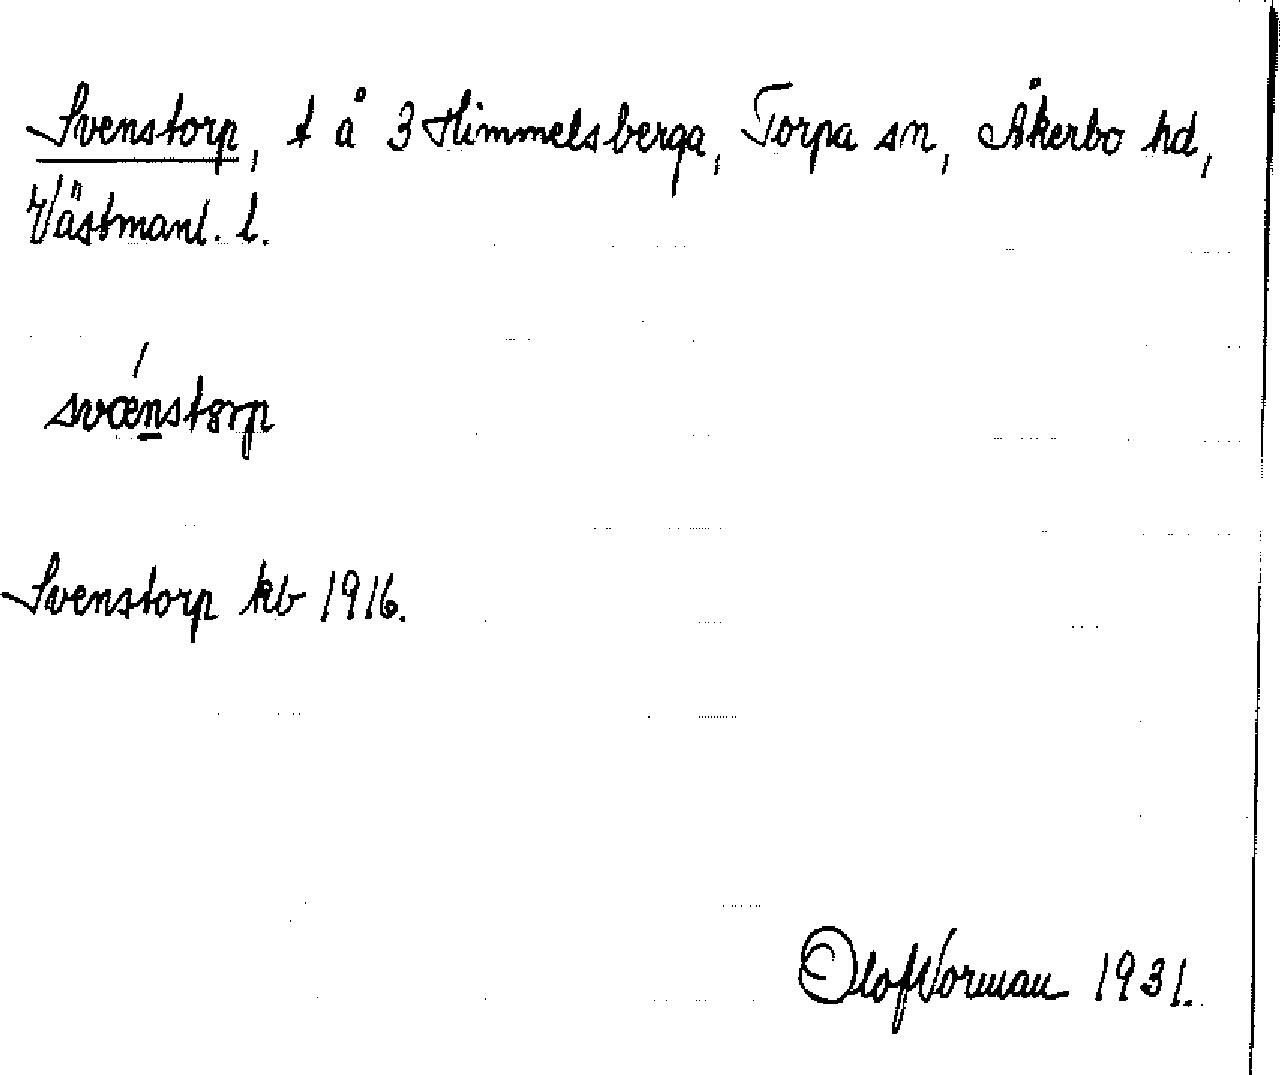 Svenstorp, t å 3 Himmelsberga, Torpa sn, Åkerbo hd,
Västmanl. l.
svǽnstorp
Svenstorp kb 1916.
Olof Norman 1931.